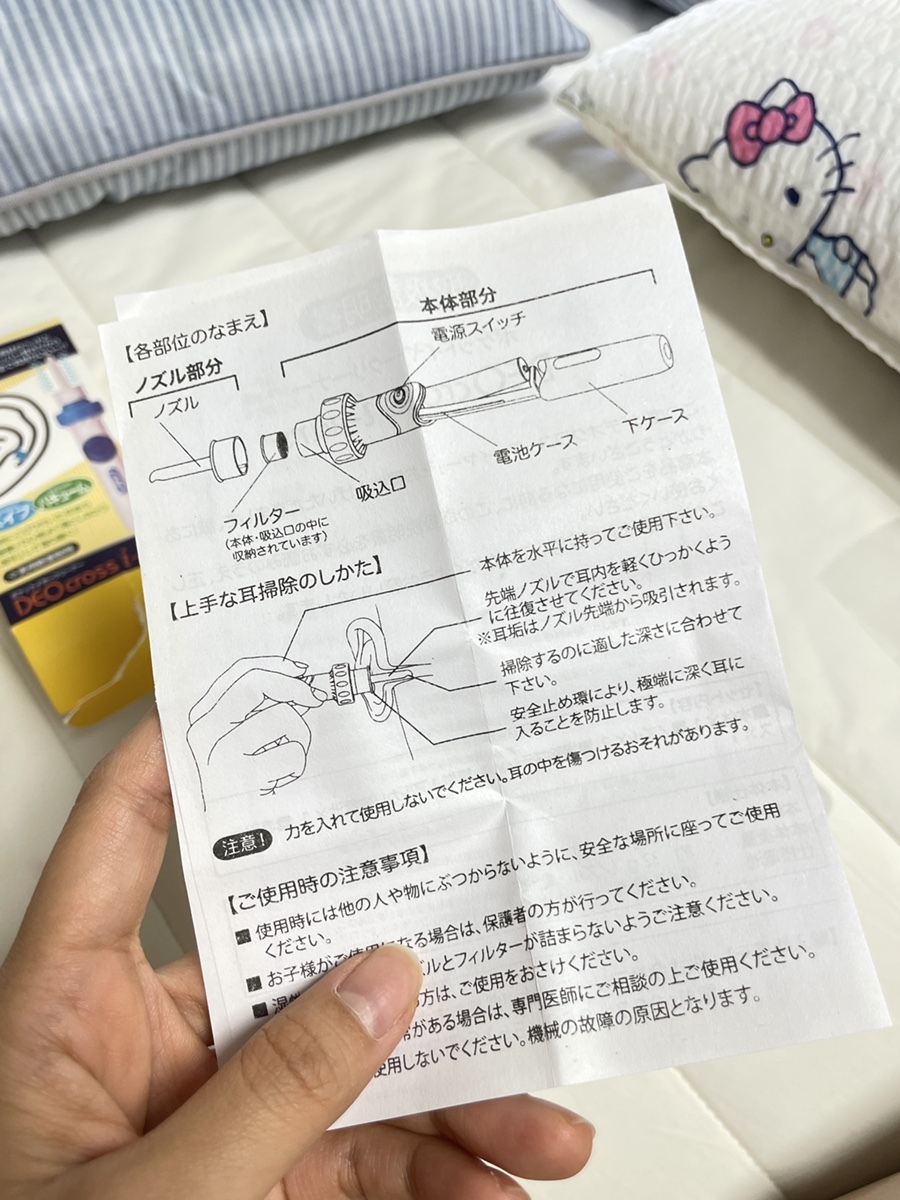 【各部位のなまえ】
本体部分
ノズル部分
電源スイッチ
ノズル
下ケース
電池ケース
吸込口
フィルター
(本体・吸込口の中に
収納されています)
【上手な耳掃除のしかた】
本体を水平に持ってご使用下さい。
先端ノズルで耳内を軽くひっかくよう
に往復させてください。
※耳垢はノズル先端から吸引されます。
掃除するのに適した深さに合わせて
下さい。
安全止め環により、極端に深く耳に
入ることを防止します。
注意! 力を入れて使用しないでください。耳の中を傷つけるおそれがあります。
【ご使用時の注意事項】
■ 使用時には他の人や物にぶつからないように、安全な場所に座ってご使用
ください。
■ お子様がご使用になる場合は、保護者の方が行ってください。
■ 湿性 ズルとフィルターが詰まらないようご注意ください。
の方は、ご使用をおさけください。
常がある場合は、専門医師にご相談の上ご使用ください。
使用しないでください。機械の故障の原因となります。
DEOcross